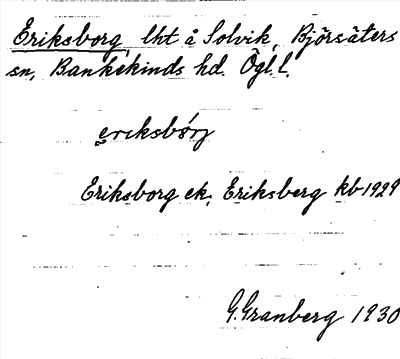 Eriksborg, lht å Solvik, Björsäters
sn, Bankekinds hd. Ögl. l.
eriksbórj
Eriksborg ek, Eriksberg kb 1929
G. Granberg 1930